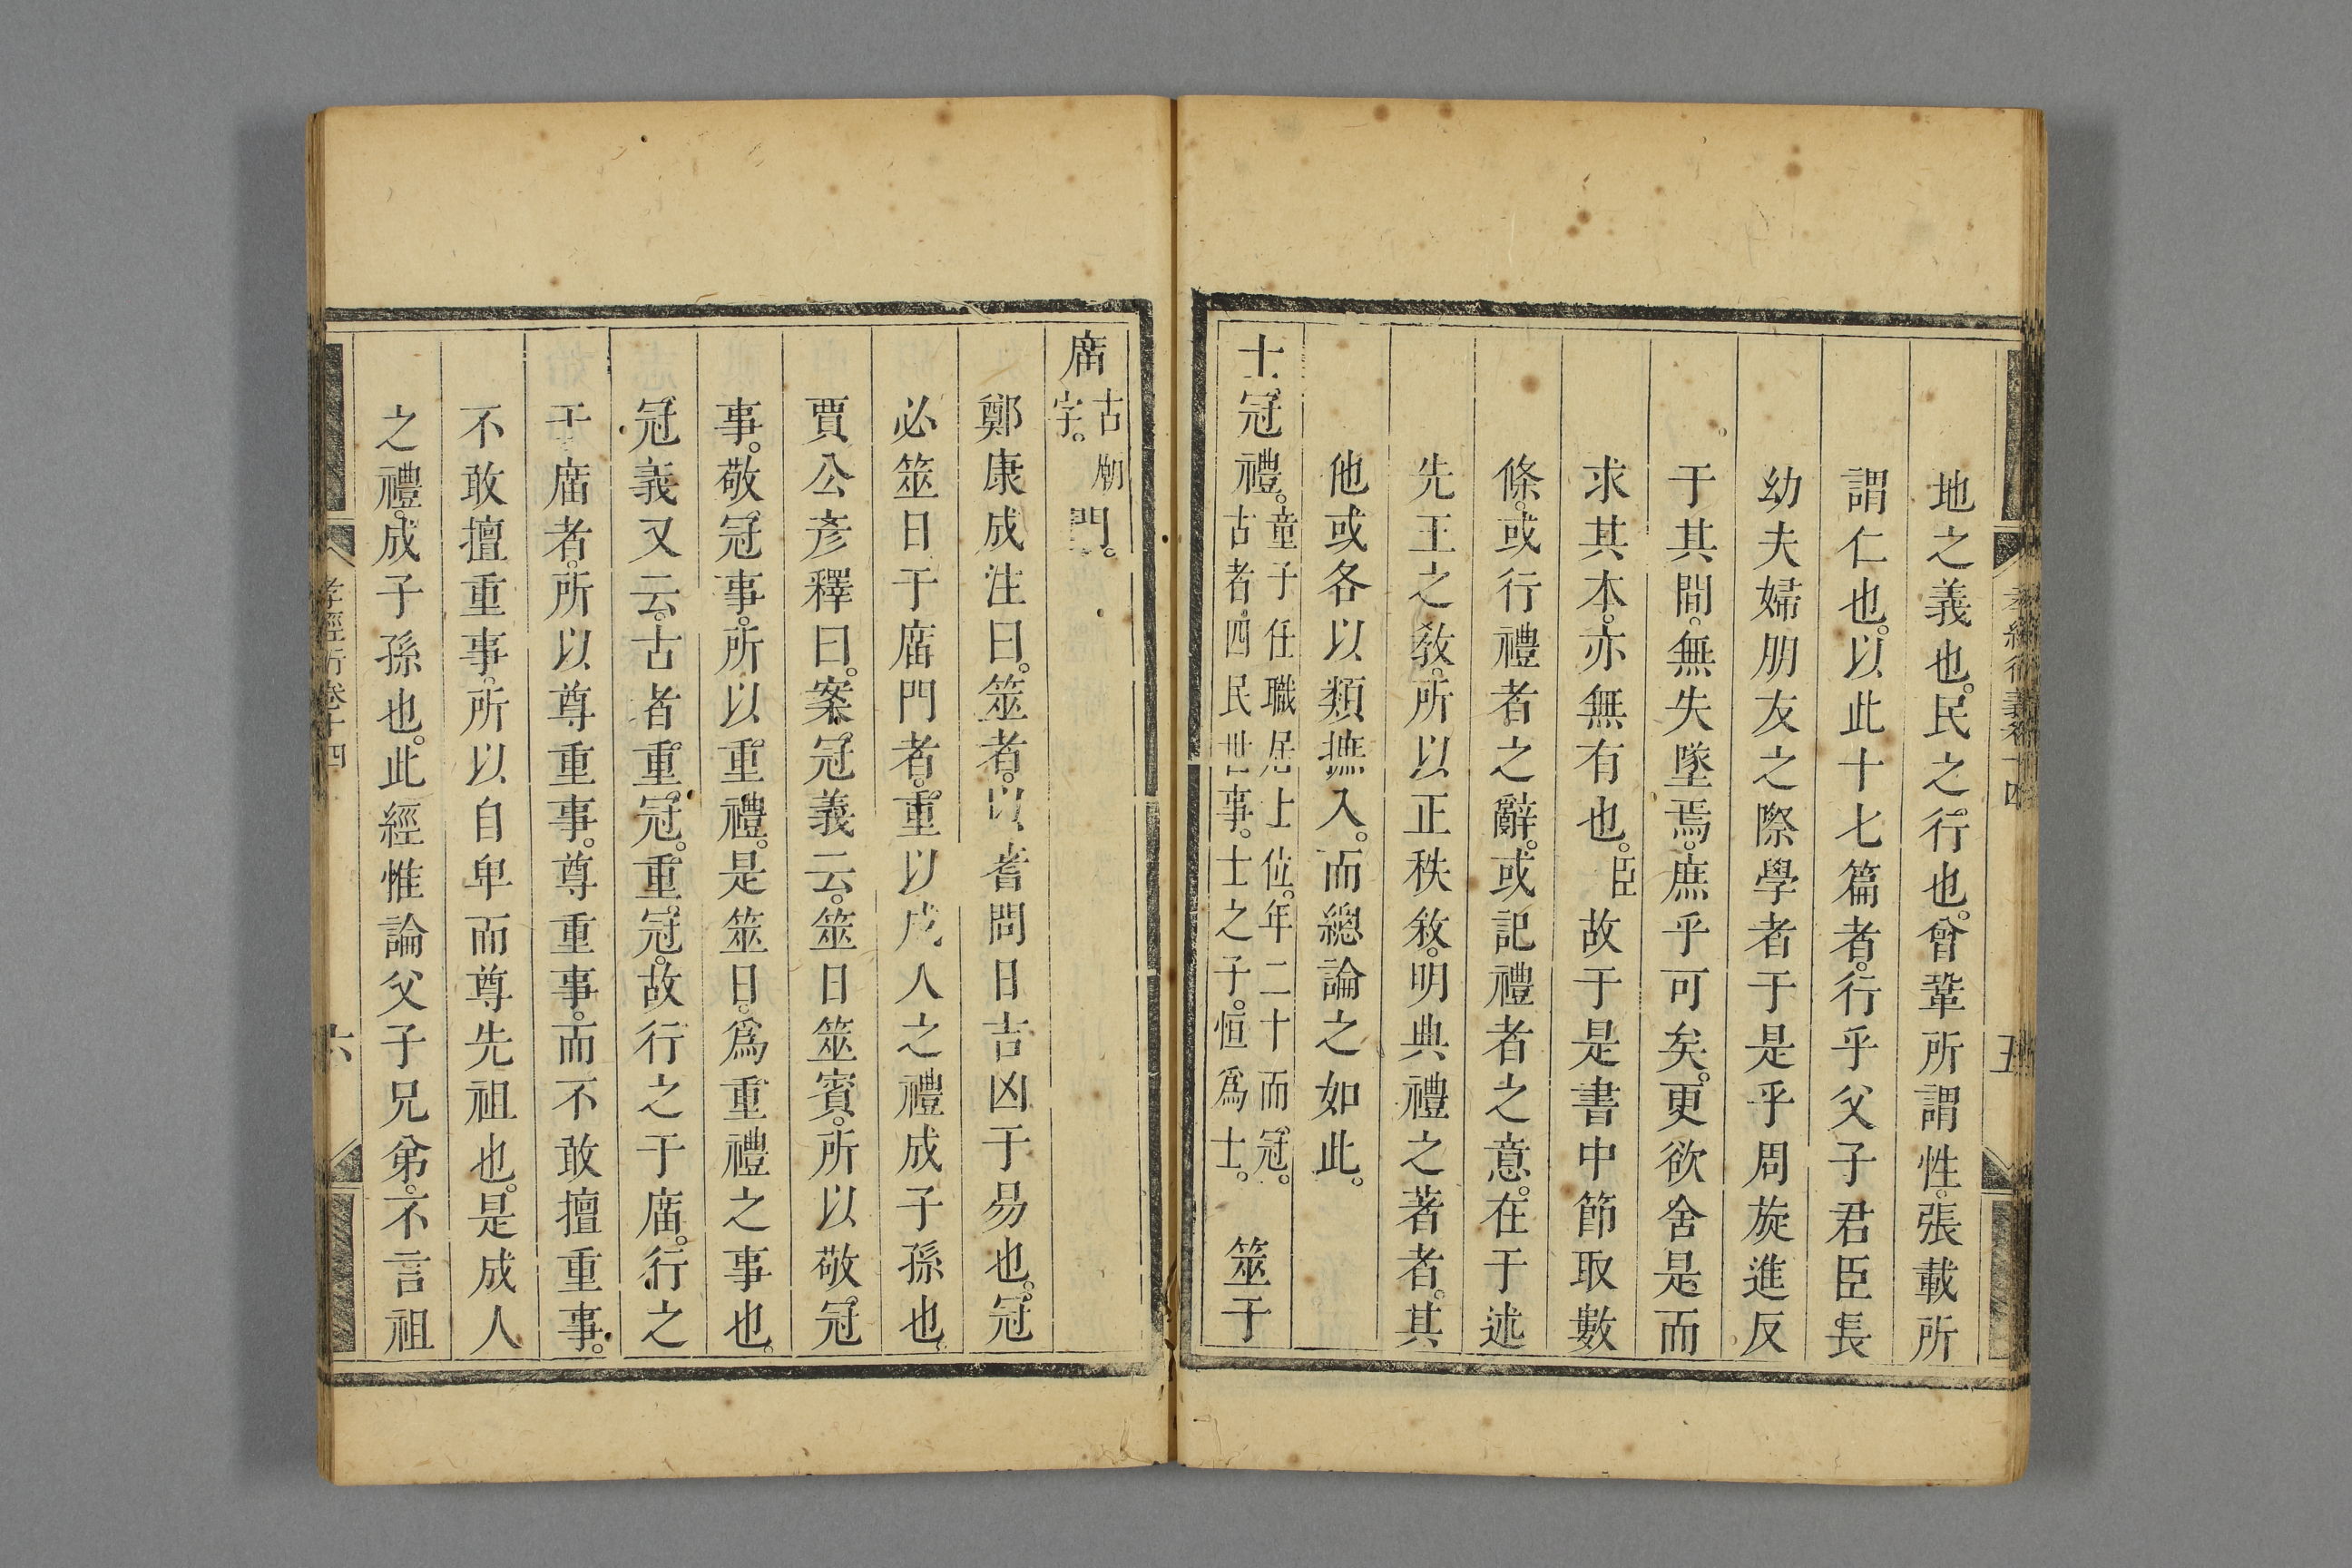 孝經衍義卷十四
五
地之義也。民之行也。曾鞏所謂性。張載所
謂仁也。以此十七篇者。行乎父子君臣長
幼夫婦朋友之際學者于是乎周旋進反
于其間。無失墜焉。庶乎可矣。更欲舍是而
求其本。亦無有也。臣故于是書中節取數
條。或行禮者之辭。或記禮者之意。在于述
先王之敎。所以正秩敘。明典禮之著者。其
他或各以類摭入。而總論之如此。
士冠禮。童子任職居上位。年二十而冠。古者四民世事。士之子。恒爲士。 筮于
庿古廟字。門。
鄭康成注曰。筮者。以蓍問日吉凶于易也。冠
必筮日于庿門者。重以成人之禮成子孫也。
賈公彥釋曰。案冠義云。筮日筮賓。所以敬冠
事。敬冠事。所以重禮。是筮日。爲重禮之事也。
冠義又云。古者重冠。重冠。故行之于庿。行之
于庿者。所以尊重事。尊重事。而不敢擅重事。
不敢擅重事。所以自卑而尊先祖也。是成人
之禮。成子孫也。此經惟論父子兄弟。不言祖
孝經衍卷十四
六